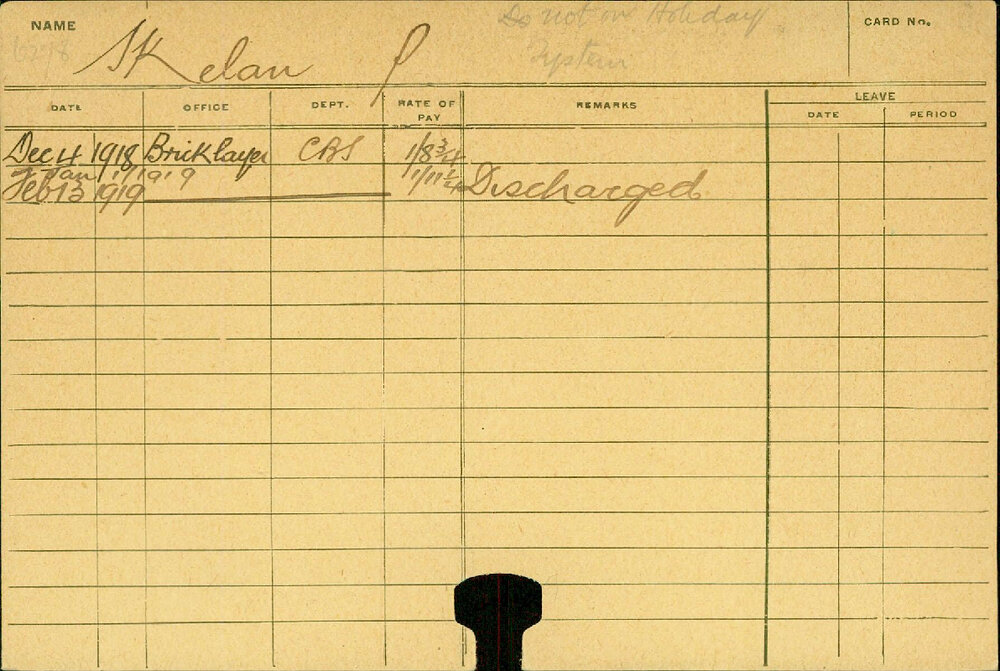 NAME
Skelan P.
Do not on Holiday
System
CARD No.
DATE OFFICE DEPT. RATE OF PAY REMARKS LEAVE
DATE PERIOD
Dec 4 1918 Bricklayer CBS 1/8 3/4
Jan 1/1919 1/11 1/4
Feb 13 1919 Discharged